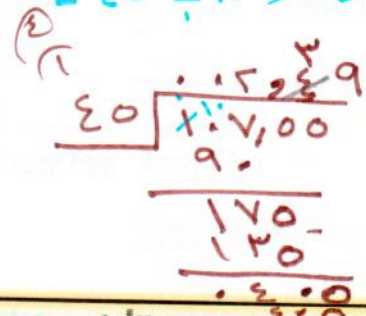 ٤
٢
٣
٠٠٢,٤٩
٤٥ ١٠٧,٥٥
٩٠
١٧٥
١٣٥
٠٤٠٥